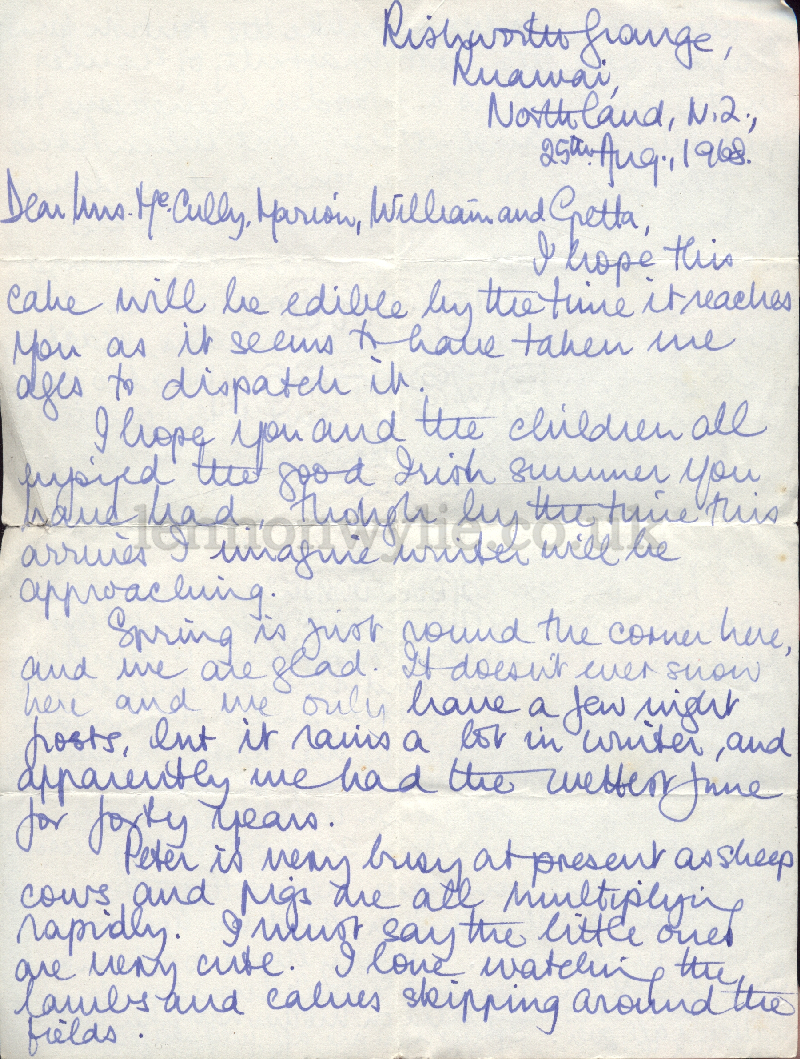 Rishworth Grange,
Ruawai,
Northland, N.Z.,
25th. Aug., 1968.
Dear Mrs. Mc.Cully, Marion, William and Gretta,
I hope this
cake will be edible by the time it reaches
you as it seems to have taken me
ages to dispatch it.
I hope you and the children all
enjoyed the good Irish summer you
have had, though by the time this
lennonwylie.co.uk
arrives I imagine winter will be
approaching.
Spring is just round the corner here,
and we are glad. It doesn't ever snow
here and we only have a few night
frosts, but it rains a lot in winter, and
apparently we had the wettest June
for forty years.
Peter is very busy at present as sheep
cows and pigs are all multiplying
rapidly. I must say the little ones
are very cute. I love watching the
lambs and calves skipping around the
fields.